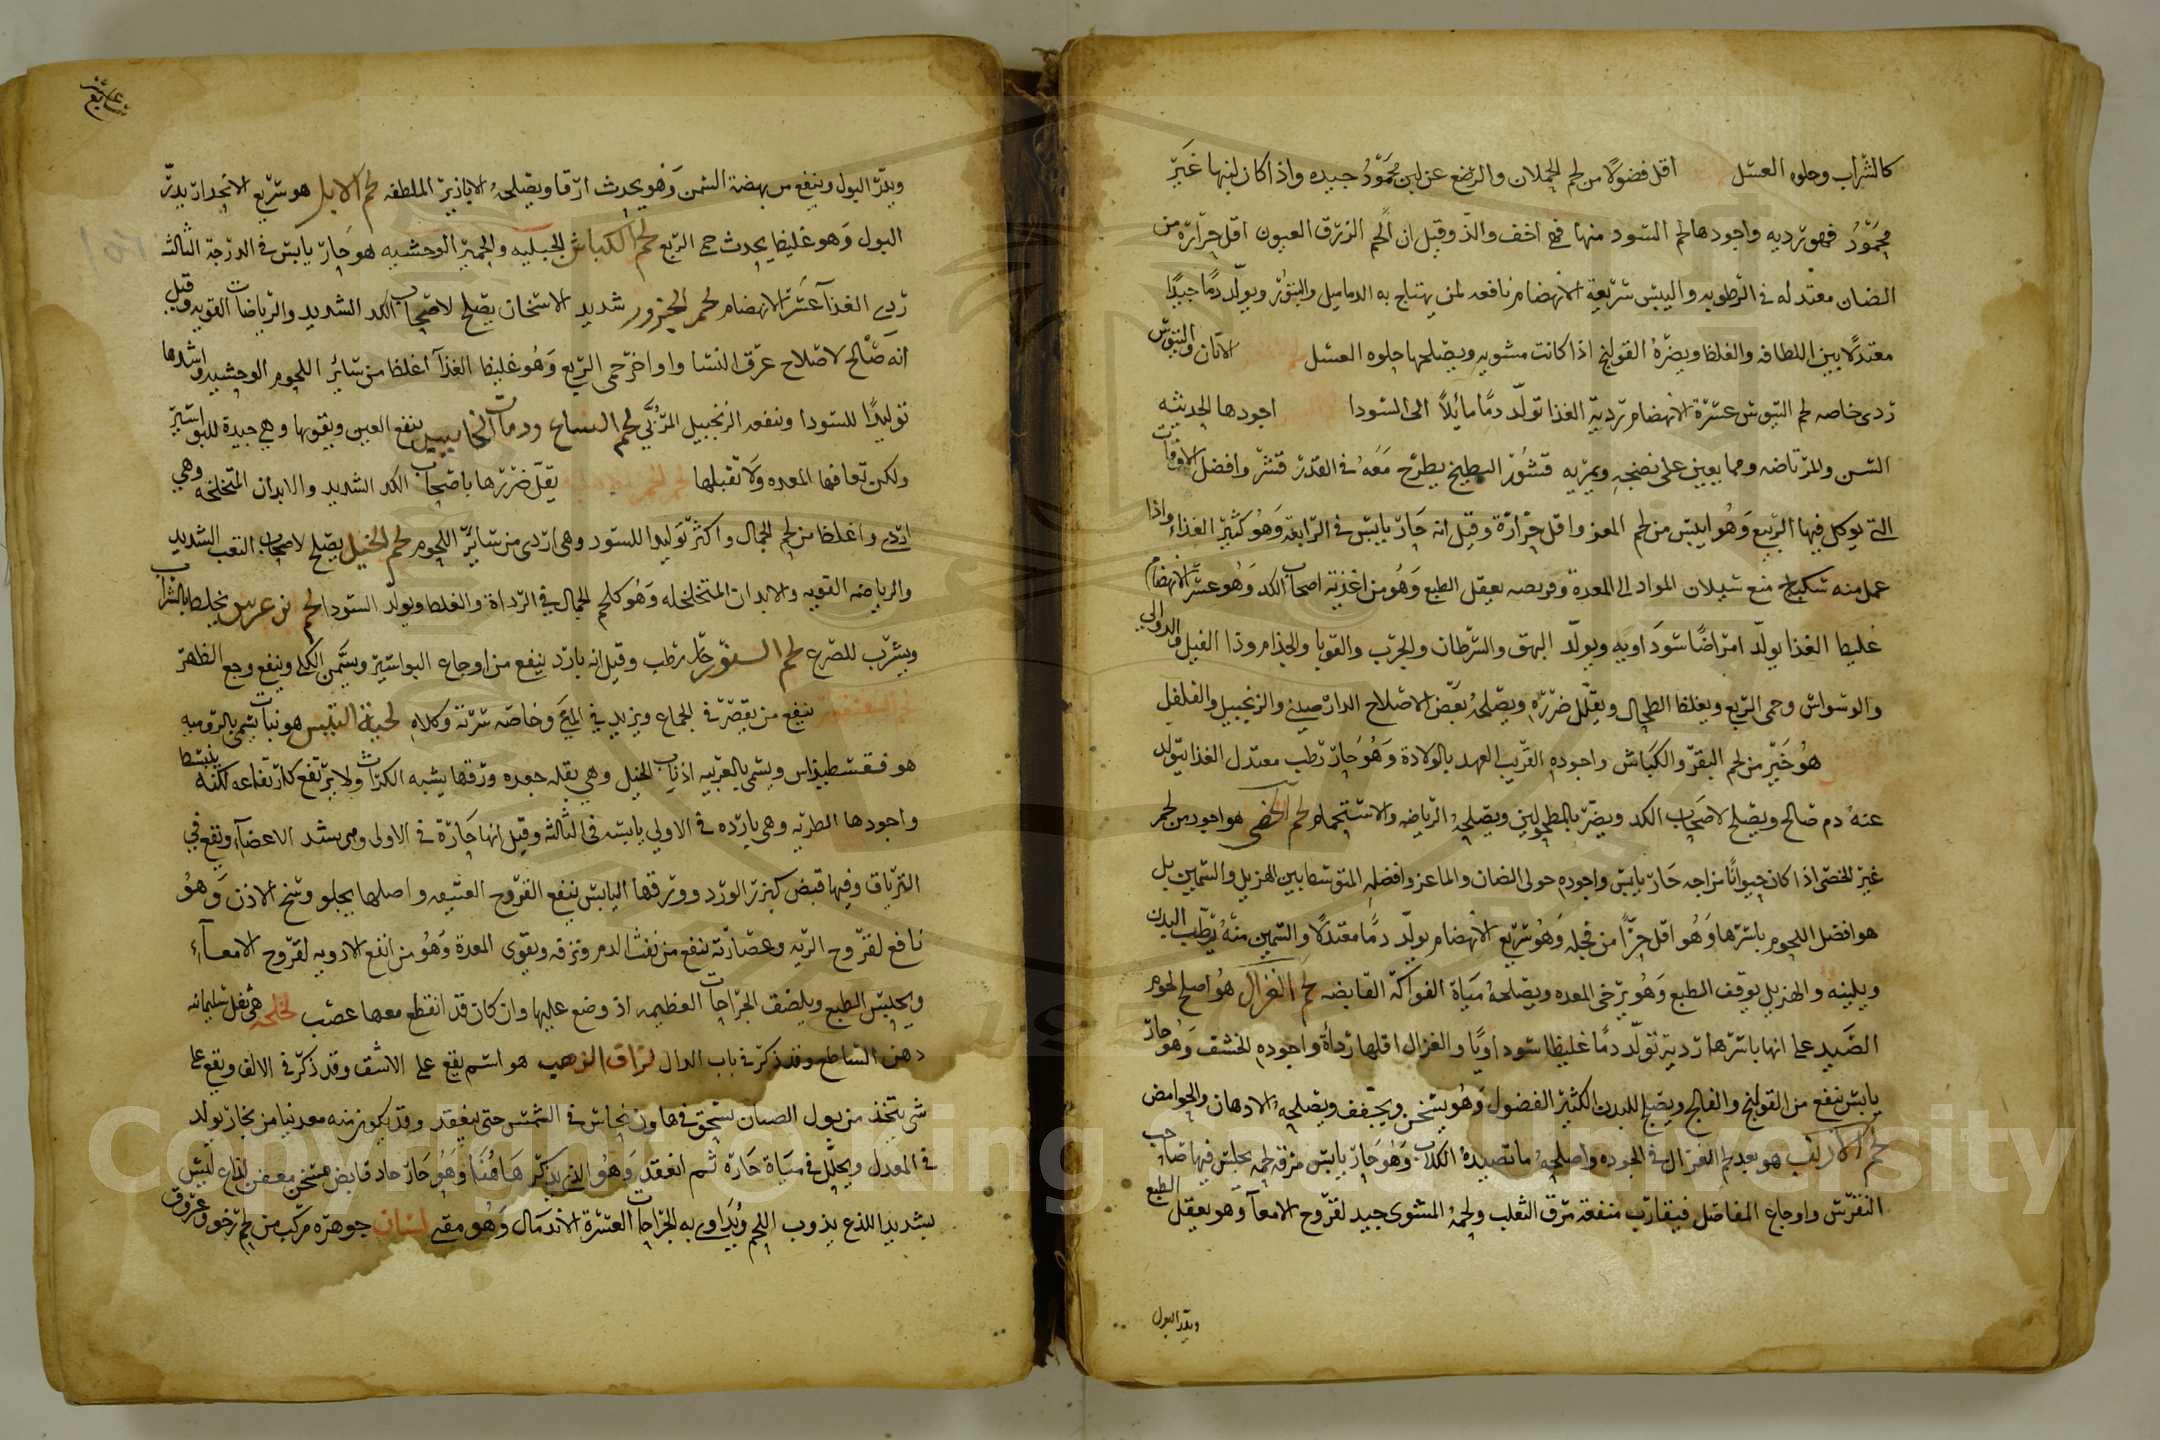 كالشراب وحلوه العسل اقل فضولا من لحم الحملان والرضع عن لبن محمود جيده واذا كان لبنها غير
محمود فهو رديه واجودها لحم السود منها فهى اخف والذ وقيل ان لحم الزرق العيون اقل حرارة من
الضان معتدله فى الرطوبه واليبس سريعة الانهضام نافعه لمن يهتاج به الدماميل والبثور ويولد دما جيدا
معتدلا بين اللطافه والغلظ ويضره القولنج اذا كانت مشويه ويصلحها حلوه العسل الاتان والتيوس
ردى خاصه لحم التيوس عسرة الانهضام ردية الغذا تولد دما مائلا الى السودا اجودها الحديثه
السن والمرتاضه ومما يعين على نضجه ويهريه قشور البطيخ يطرح معه فى القدر قشر وافضل الاوقات
التى يوكل فيها الربيع وهو ايبس من لحم المعز واقل حرارة وقيل انه حار يابس فى الرابعة وهو كثير الغذاء واذا
عمل منه سكباج منع سيلان المواد الى المعدة وقريصه يعقل الطبع وهو من اغذية اصحاب الكد وهو عسر الانهضام
غليظ الغذا يولد امراضا سوداويه ويولد البهق والسرطان والجرب والقوبا والجذام وذا الفيل والدوالى
والوسواس وحمى الربع ويغلظ الطحال ويقلل ضرره ويصلحه بعض الاصلاح الدارصينى والزنجبيل والفلفل
هو خير من لحم البقر والكباش واجوده القريب العهد بالولادة وهو حار رطب معتدل الغذا يتولد
عنه دم صالح ويصلح لاصحاب الكد ويضر بالمطحولين ويصلحه الرياضه والاستحمام لحم الخصى هو اجود من لحم
غير الخصى اذا كان حيوانا مزاجه حار يابس واجوده حولى الضان والماعز وافضله المتوسط بين الهزيل والسمين بل
هو افضل اللحوم باسرها وهو اقل حرا من فحله وهو سريع الانهضام يولد دما معتدلا والسمين منه يرطب البدن
ويلينه والهزيل يوقف الطبع وهو يرخى المعده ويصلحه مياة الفواكه القابضه لحم الغزال هو اصلح لحوم
الصيد على انها باسرها ردية تولد دما غليظا سوداويا والغزال اقلها رداة واجوده الخشف وهو حار
يابس ينفع من القولنج والفالج ويصلح للبدن الكثير الفضول وهو يسخن ويجفف ويصلحه الادهان والحوامض
لحم الارنب هو بعد لحم الغزال فى الجوده واصلحه ما تصيده الكلاب وهو حار يابس مرقة لحمه يجلس فيها صاحب
النقرس واوجاع المفاصل فيقارب منفعة مرق الثعلب ولحمه المشوى جيد لقروح الامعا وهو يعقل الطبع
ويدر البول
ويدر البول وينفع من بهضة السمن وهو يحدث ارقا ويصلحه الابازير الملطفه لحم الايل هو سريع الانحدار يدر
البول وهو غليظ يحدث حمى الربع لحم الكباش الجبليه والحمير الوحشيه هو حار يابس فى الدرجة الثالثه
ردى الغذا عسر الانهضام لحم الجزور شديد الاسخان يصلح لاصحاب الكد الشديد والرياضات القويه وقيل
انه صالح لاصلاح عرق النسا واواخر حمى الربع وهو غليظ الغذا اغلظ من سائر اللحوم الوحشيه واشدها
توليدا للسودا وينفعه الزنجبيل المربى لحم السباع ودمات المخاليب ينفع العين ويقويها وهى جيدة للبواسير
ولكن تعافها المعده ولا تقبلها يقل ضررها باصحاب الكد الشديد والابدان المتخلخله وهى
اردى واغلظ من لحم الجمال واكثر توليدا للسود وهى اردى من سائر اللحوم لحم الخيل يصلح لاصحاب التعب الشديد
والرياضه القويه والابدان المتخلخله وهو كلحم الجمال فى الرداة والغلظ ويولد السودا لحم ابن عرس يخلط بالشراب
ويشرب للصرع لحم السنور حار رطب وقيل انه بارد ينفع من اوجاع البواسير ويسخن الكلا وينفع وجع الظهر
ينفع من يقصر فى الجماع ويزيد فى المنى وخاصه سرته وكلاه لحية التيس هو نبات يسمى بالروميه
هو فسقسطيداس ويسمى بالعربيه اذناب الخيل وهى بقله جعده ورقها يشبه الكراث ولا يرتفع كارتفاعه لكنه ينبسط
واجودها الطريه وهى بارده فى الاولى يابسه فى الثالثه وقيل انها حارة فى الاولى وهى تشد الاعضآ وتقع فى
الترياق وفيها قبض كبزر الورد وورقها اليابس ينفع القروح العتيقه واصلها يجلو وسخ الاذن وهو
نافع لقروح الريه وعصارته تنفع من نفث الدم ونزفه ويقوى المعدة وهو من انفع الادويه لقروح الامعآء
ويحبس الطبع ويلصق الجراحات العظيمه اذ وضع عليها وان كان قد انقطع معها عصب لخلخه هى ثفل سليمانه
دهن الساطع وقد ذكر فى باب الدال لزاق الذهب هو اسم يقع على الاشق وقد ذكر فى الالف ويقع على
شى يتخذ من بول الصبيان يسحق فى هاون نحاس فى الشمس حتى ينعقد وقد يكون منه معدنيا من بخار يولد
فى المعدن ويحلل فى مياة حارة ثم انعقد وهو الذى يذكر هاهنا وهو حار حاد قابض مسخن معفن لذاع ليس
بشديد اللذع يذوب اللحم ويداوى به الجراحات العسرة الاندمال وهو مقى لسان جوهره مركب من لحم رخو وعروق